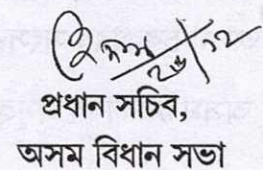 প্ৰধান সচিব,
অসম বিধান সভা